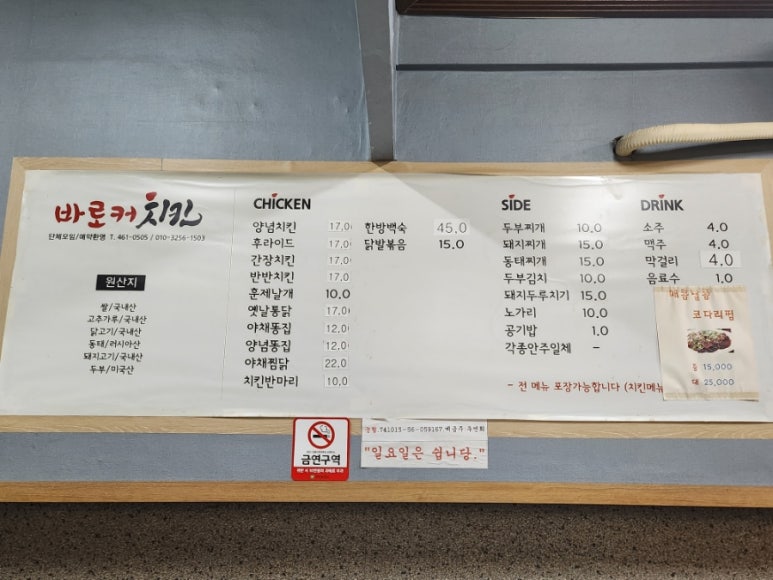 바로커 치킨
단체모임/예약환영 T. 461-0505 / 010-3256-1503
원산지
쌀/국내산
고추가루/국내산
닭고기/국내산
동태/러시아산
돼지고기/국내산
두부/미국산
CHICKEN
양념치킨 17.0
후라이드 17.0
간장치킨 17.0
반반치킨 17.0
훈제날개 10.0
옛날통닭 17.0
야채똥집 12.0
양념똥집 12.0
야채찜닭 22.0
치킨반마리 10.0
한방백숙 45.0
닭발볶음 15.0
SIDE
두부찌개 10.0
돼지찌개 15.0
동태찌개 15.0
두부김치 10.0
돼지두루치기 15.0
노가리 10.0
공기밥 1.0
각종안주일체 -
- 전 메뉴 포장가능합니다 (치킨메뉴
DRINK
소주 4.0
맥주 4.0
막걸리 4.0
음료수 1.0
코다리찜
중 15,000
대 25,000
금연구역
농협.741015-56-059167.
"일요일은 쉽니당."